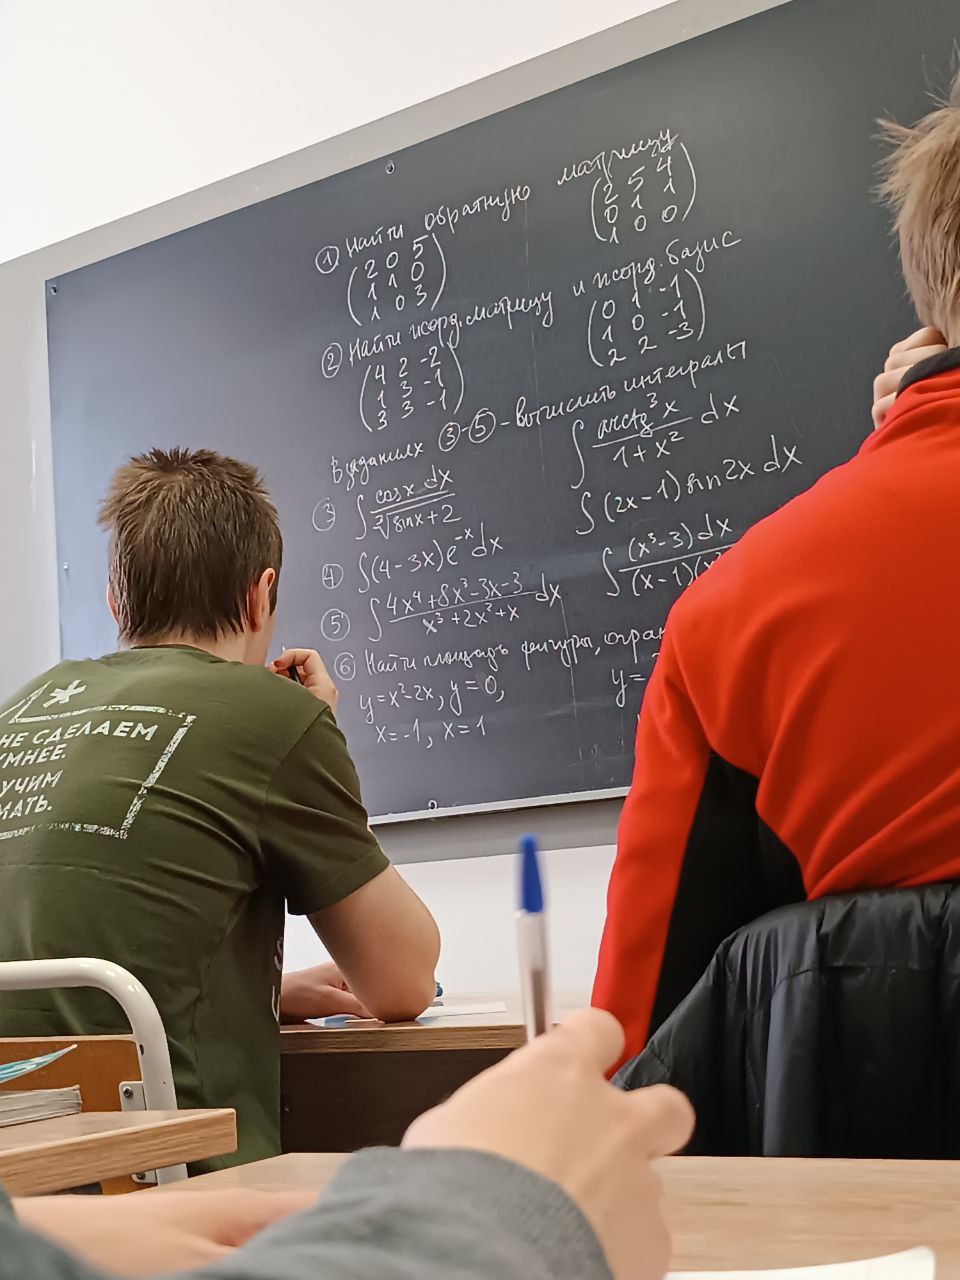 ① Найти обратную матрицу
2 0 5
1 1 0
1 0 3
2 5 4
0 1 1
1 0 0
② Найти жорд. матрицу и жорд. базис
4 2 -2
1 3 -1
3 3 -1
0 1 -1
1 0 -1
2 2 -3
В заданиях ③-⑤ - вычислить интегралы
③ ∫ cosx dx / ∛(sinx+2)
∫ arctg³x / (1+x²) dx
④ ∫(4-3x)e^(-x) dx
∫(2x-1) sin2x dx
⑤ ∫ (4x⁴+8x³-3x-3) / (x³+2x²+x) dx
∫ (x³-3)dx / (x-1)(x
⑥ Найти площадь фигуры, огран
y=x²-2x, y=0,
x=-1, x=1
y=
НЕ СДЕЛАЕМ
УМНЕЕ.
УЧИМ
МАТЬ.